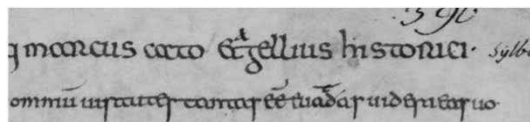 q marcus cato & gellius historici. sylb
omniū uirtutes tantas eē uideri eas uo